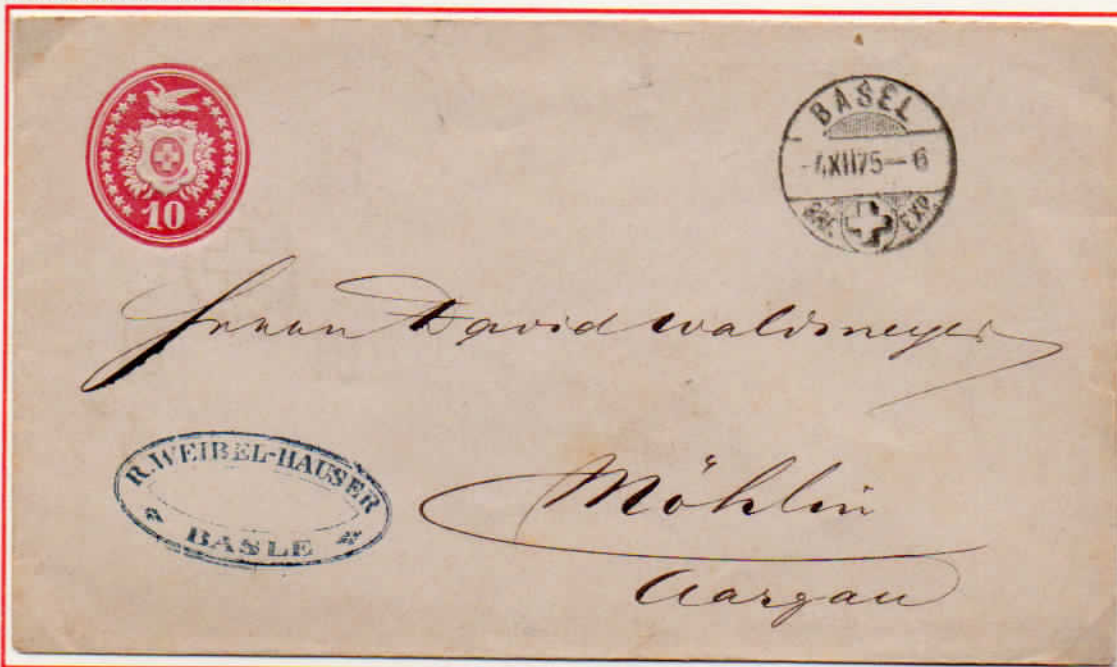 10
BASEL
-4XII75—6
BRF. EXP.
Herrn David Waldmeyer
R. WEIBEL-HAUSER
BASLE
Möhlin
Aargau